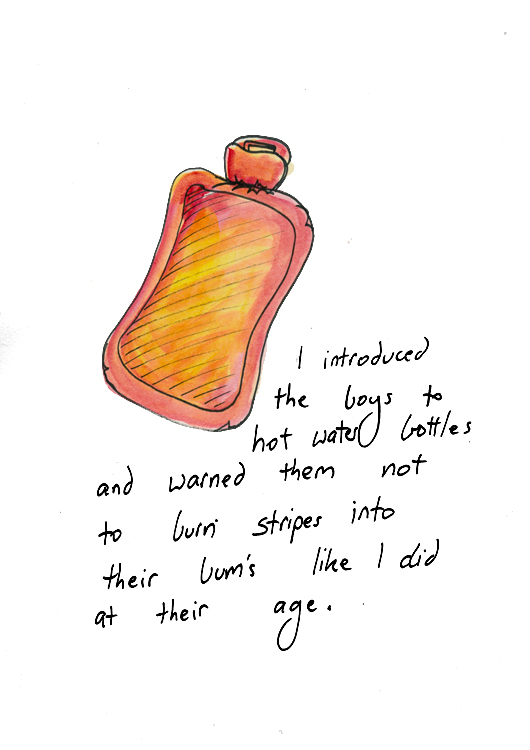 I introduced
the boys to
hot water bottles
and warned them not
to burn stripes into
their bum's like I did
at their age.